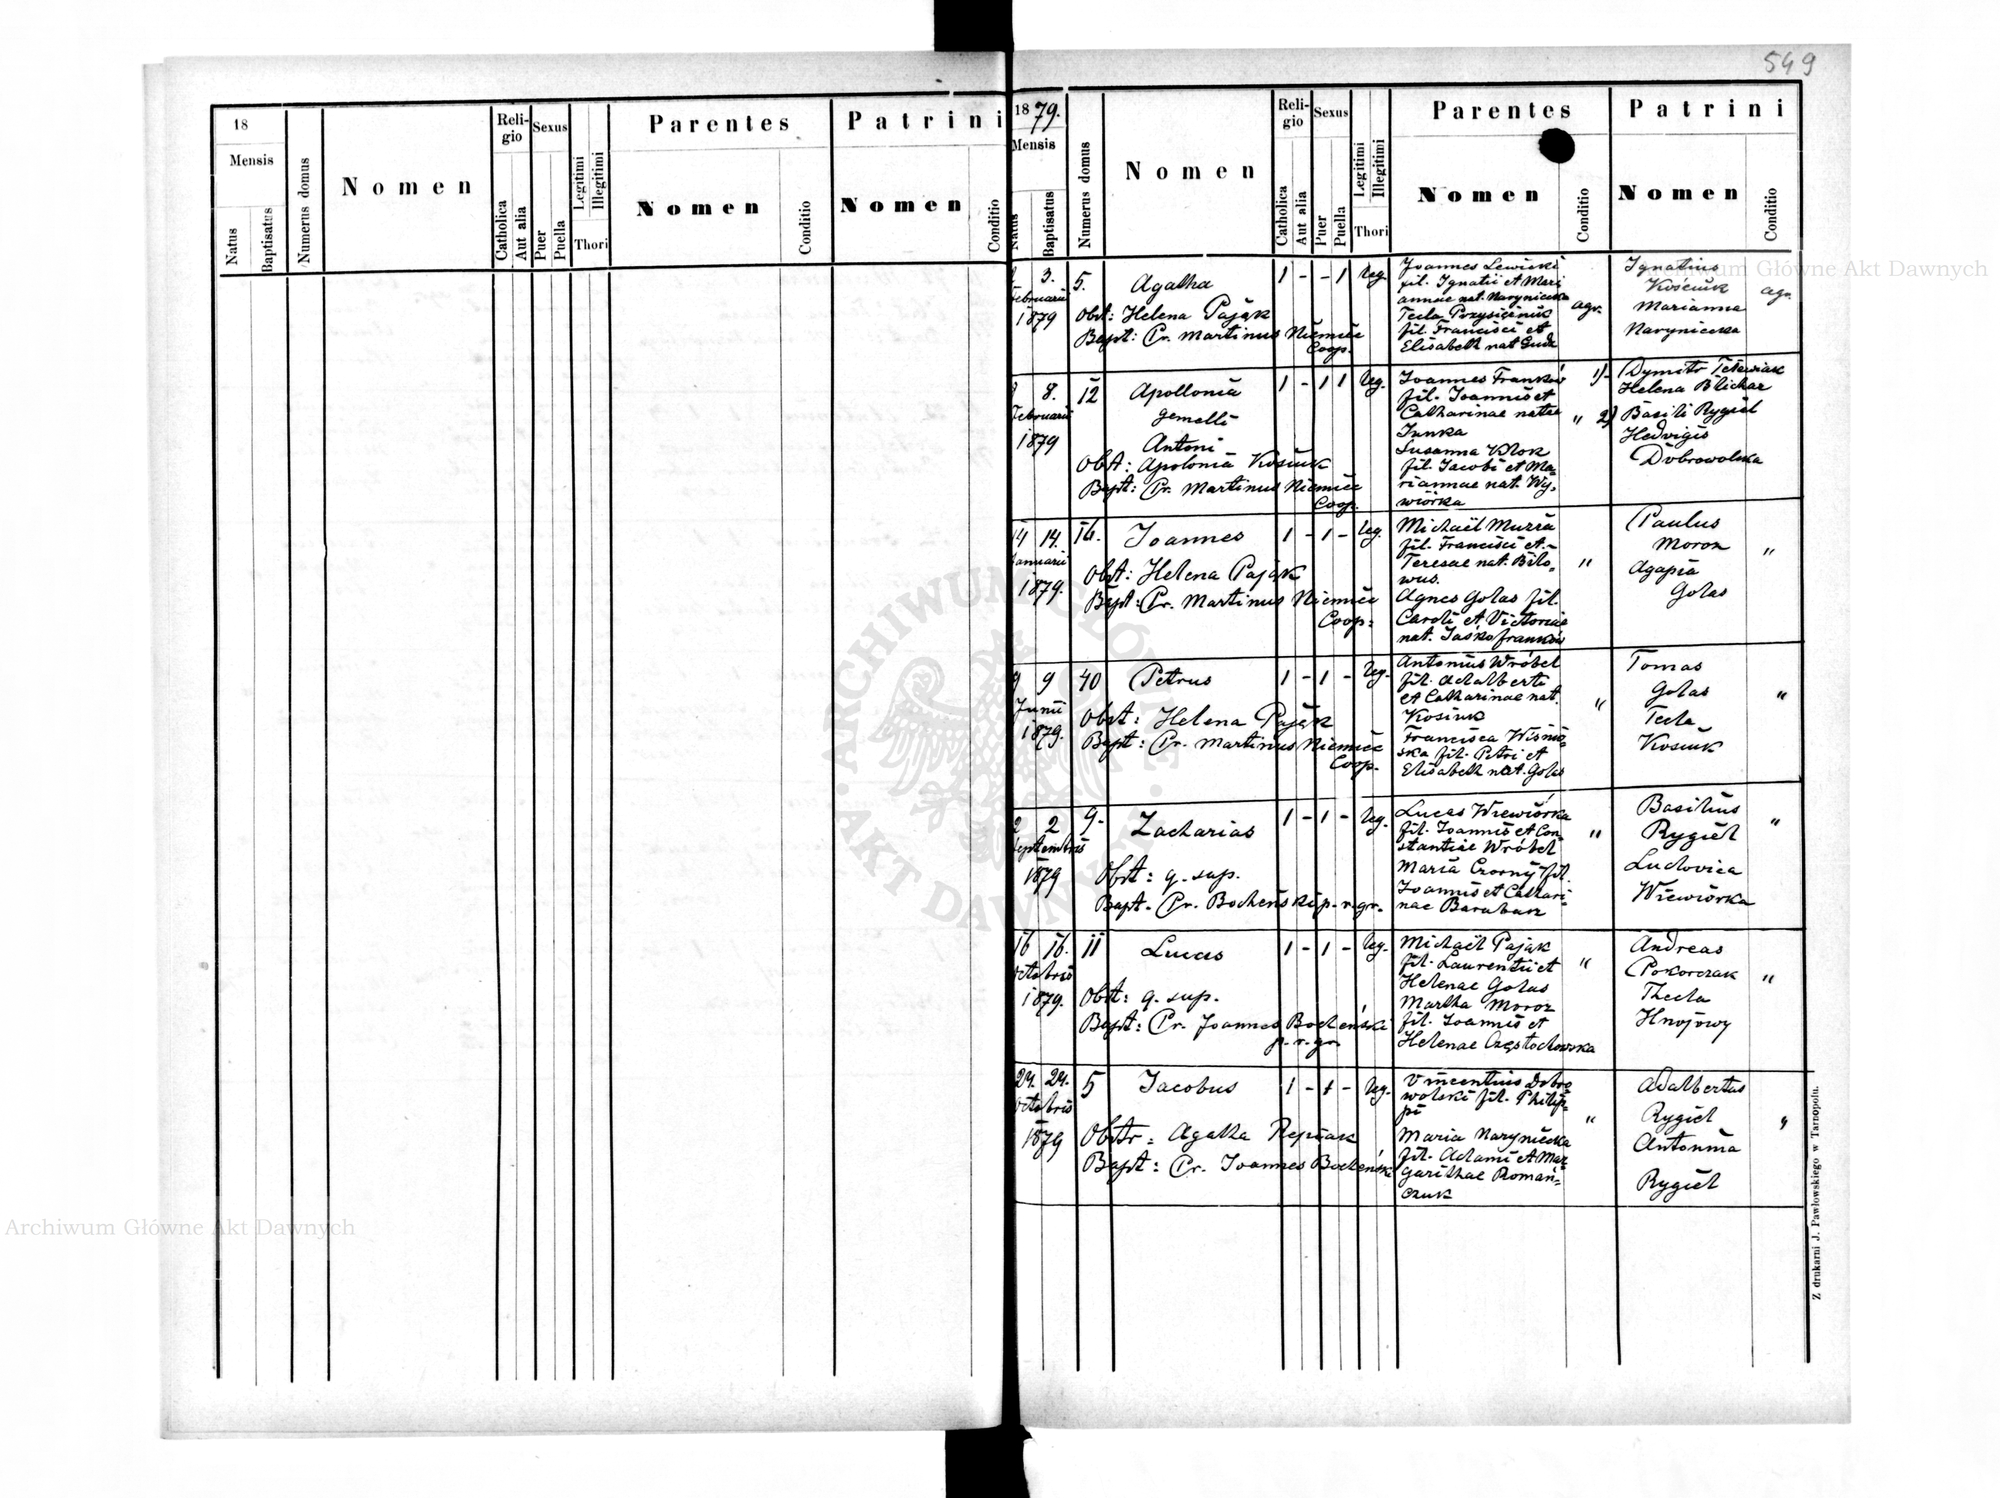 549
18
Mensis
Natus
Baptisatus
Numerus domus
Nomen
Religio
Catholica
Aut alia
Sexus
Puer
Puella
Legitimi
Illegitimi
Thori
Parentes
Nomen
Conditio
Patrini
Nomen
Conditio
1879.
Mensis
Natus
Baptisatus
Numerus domus
Nomen
Religio
Catholica
Aut alia
Sexus
Puer
Puella
Legitimi
Illegitimi
Thori
Parentes
Nomen
Conditio
Patrini
Nomen
Conditio
3. Februarii 1879
5.
Agatha
Obst: Helena Pająk
Bapt: Pr. Martinus Niemiec
Coop.
1 - - 1 leg.
Joannes Lewicki
fil. Ignatii et Mari
annae nat. Naryniecka
Tecla Przysiężniuk
fil. Francisci et
Elisabeth nat Guda
agr.
Ignatius
Kosciuk
Marianna
Naryniecka
agr.
8. Februarii 1879
12
Apollonia
gemelli
Antoni
Obst: Apolonia Kosiuk
Bapt: Pr. Martinus Niemiec
Coop.
1 - 1 1 leg.
Joannes Franków
fil. Joannis et
Catharinae natae
Junka
Susanna Klok
fil. Jacobi et Ma-
riannae nat. Wy-
wiórka
"
1) Dymitr
Helena Blichar
2) Basili Rygiel
Hedvigis
Dobrowolska
14 14. Januarii 1879.
14.
Joannes
Obst: Helena Pająk
Bapt: Pr. Martinus Niemiec
Coop:
1 - 1 - leg.
Michaël Mursa
fil. Francisci et
Teresae nat. Bilo-
wus.
Agnes Golas fil.
Caroli et Victoriae
nat. Jaśkofranków
"
Paulus
Moroz
Agapia
Golas
"
9 9 Junii 1879.
40
Petrus
Obst: Helena Pająk
Bapt: Pr. Martinus Niemiec
Coop.
1 - 1 - leg.
Antonius Wróbel
fil. Adalberti
et Catharinae nat.
Kosiuk
Francisca Wisnio-
ska fil. Petri et
Elisabeth nat. Golas
"
Tomas
Golas
Tecla
Kosiuk
"
2 2 Septembris 1879
9.
Zacharias
Obst: q. sup.
Bapt. Pr. Bocheński p. r. gr.
1 - 1 - leg.
Lucas Wiewiórka
fil. Joannis et Con-
stantiae Wróbel
Maria Czorny fil.
Joannis et Cathari-
nae Barabasz
"
Basilius
Rygiel
Ludovica
Wiewiórka
"
16 16. Octobris 1879.
11
Lucas
Obst: q. sup.
Bapt: Pr. Joannes Bocheński
p. r. gr.
1 - 1 - leg.
Michaël Pająk
fil. Laurentii et
Helenae Golas
Martha Moroz
fil. Joannis et
Helenae Częstochowska
"
Andreas
Pokorczak
Thecla
Hnojowy
"
24. 24. Octobris 1879
5
Jacobus
Obstr: Agatha Repciak
Bapt: Pr. Joannes Bocheński
1 - 1 - leg.
Vincentius Dobro
wolski fil. Philip-
pi
Maria Naryniecka
fil. Adami et Mar-
garithae Roman-
czuk
"
Adalbertus
Rygiel
Antonina
Rygiel
"
Z drukarni J. Pawłowskiego w Tarnopolu.
Archiwum Główne Akt Dawnych
Archiwum Główne Akt Dawnych
· ARCHIWUM GŁÓWNE · AKT DAWNYCH ·